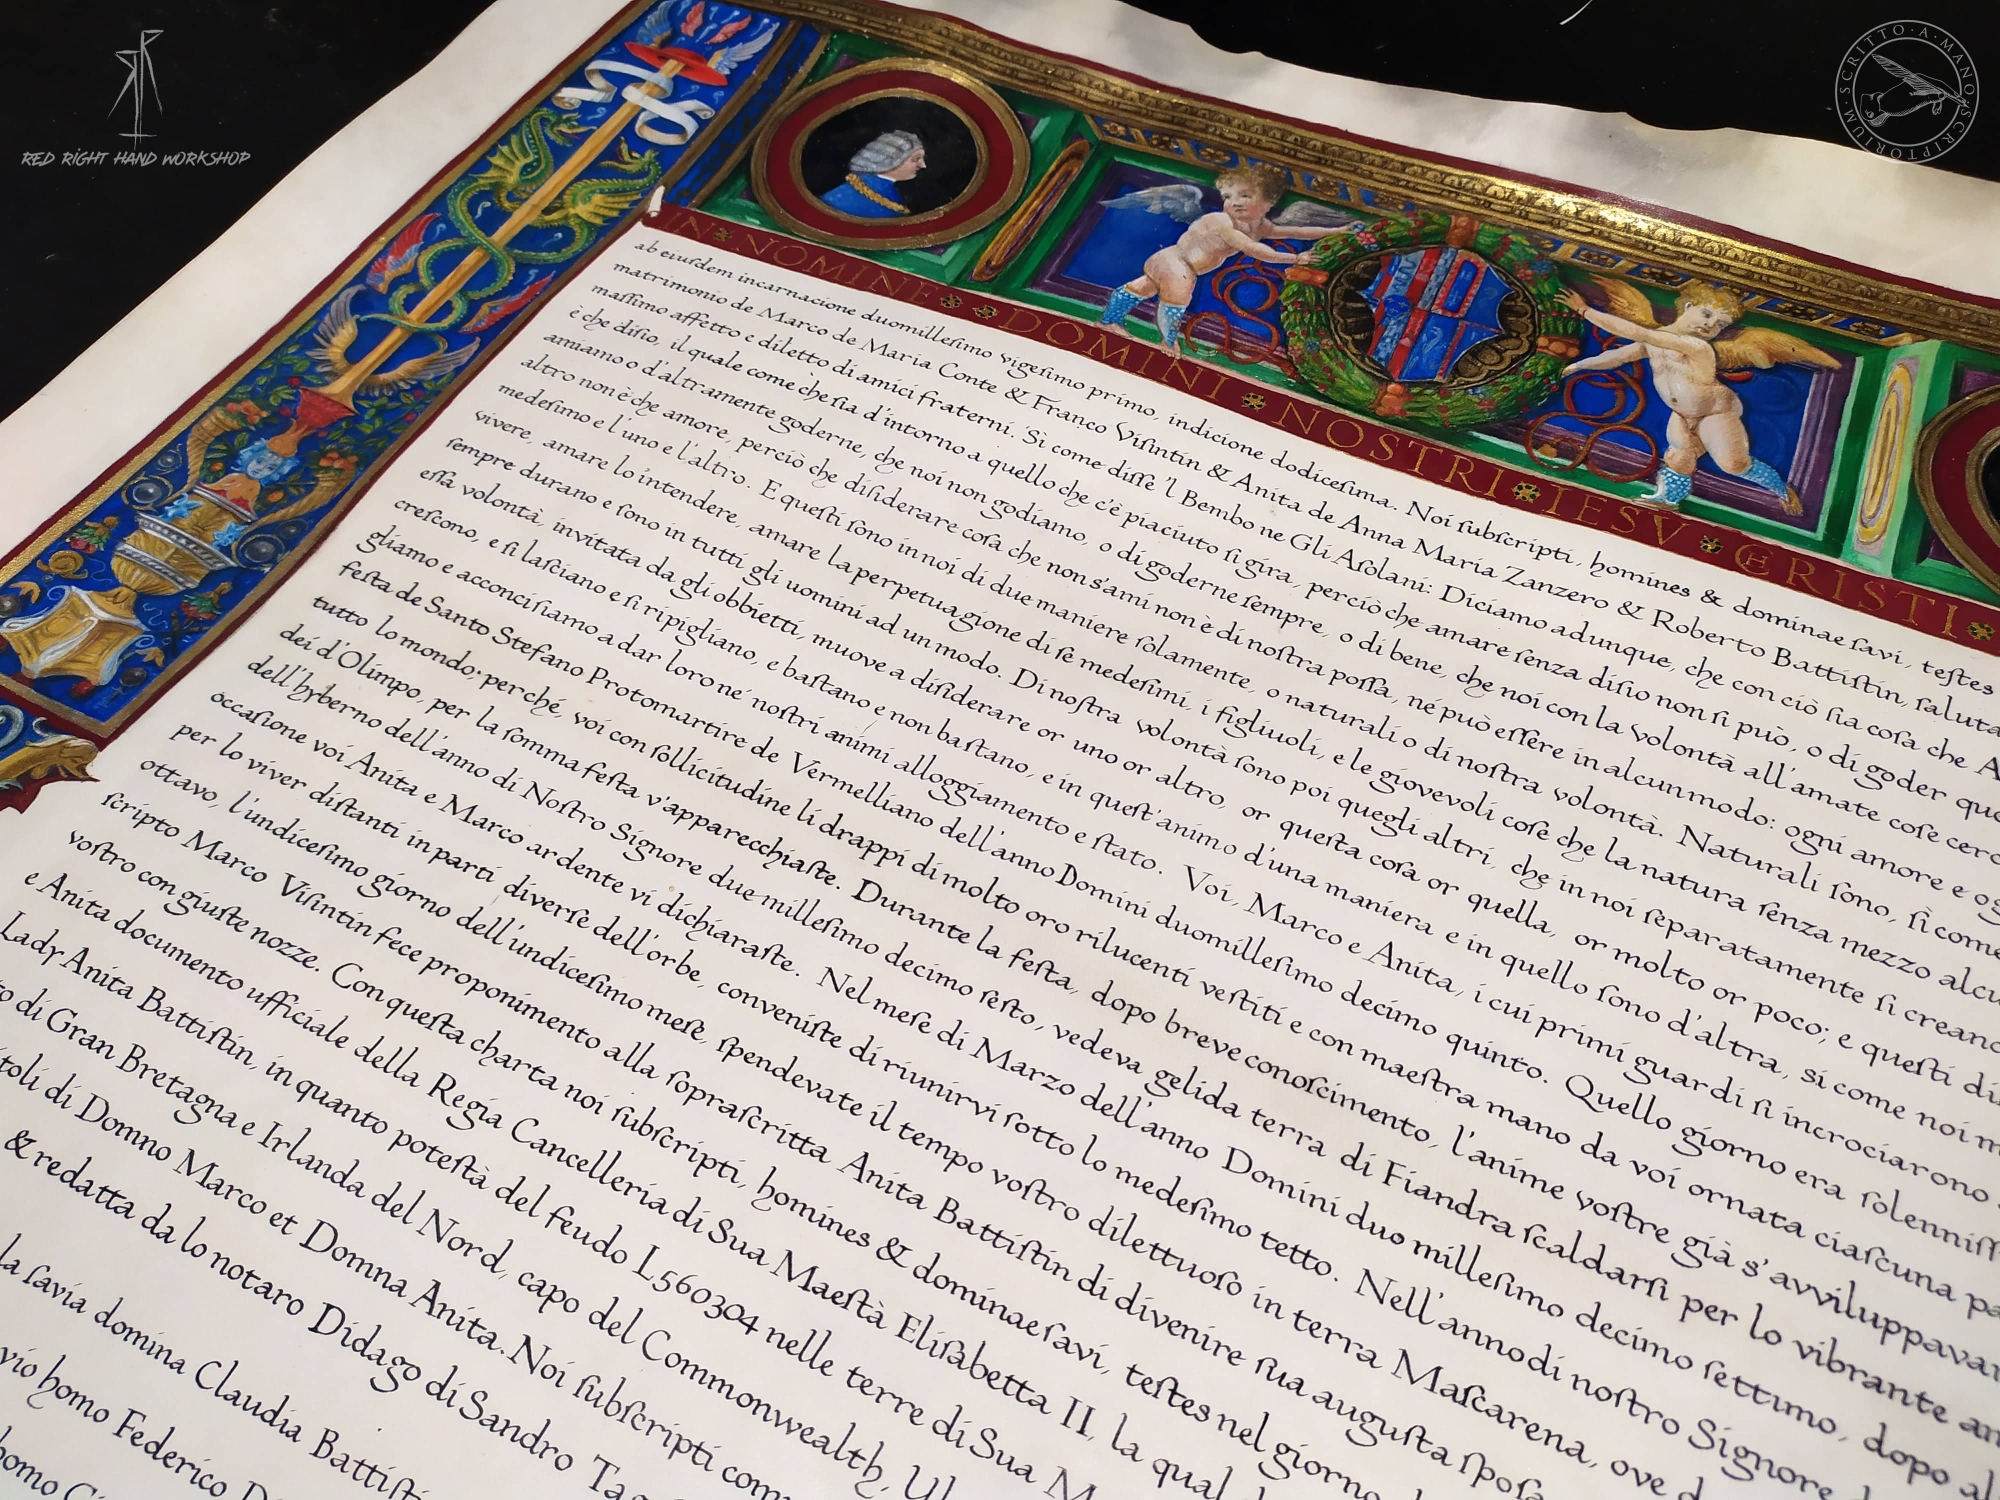 RED RIGHT HAND WORKSHOP
SCRITTO · A · MANO SCRIPTORIUM
IN NOMINE DOMINI NOSTRI IESV CHRISTI
ab eiusdem incarnacione duomillesimo vigesimo primo, indicione dodicesima. Noi subscripti, homines & dominae savi, testes
matrimonio de Marco de Maria Conte & Franco Visintin & Anita de Anna Maria Zanzero & Roberto Battistin, saluta
massimo affetto e diletto di amici fraterni. Sì come disse 'l Bembo ne Gli Asolani: Diciamo adunque, che con ciò sia cosa che A
è che disio, il quale come che sia d'intorno a quello che c'è piaciuto si gira, perciò che amare senza disio non si può, o di goder que
amiamo o d'altramente goderne, che noi non godiamo, o di goderne sempre, o di bene, che noi con la volontà all'amate cose cerc
altro non è che amore, perciò che disiderare cosa che non s'ami non è di nostra possa, né può essere in alcun modo: ogni amore e og
medesimo e l'uno e l'altro. E questi sono in noi di due maniere solamente, o naturali o di nostra volontà. Naturali sono, sì come
vivere, amare lo intendere, amare la perpetuagione di se medesimi, i figliuoli, e le giovevoli cose che la natura senza mezzo alcu
sempre durano e sono in tutti gli uomini ad un modo. Di nostra volontà sono poi quegli altri, che in noi separatamente si creano
essa volontà, invitata da gli obbietti, muove a disiderare or uno or altro, or questa cosa or quella, or molto or poco; e questi di
crescono, e si lasciano e si ripigliano, e bastano e non bastano, e in quest'animo d'una maniera e in quello sono d'altra, sì come noi m
gliamo e acconcisiamo a dar loro ne' nostri animi alloggiamento e stato. Voi, Marco e Anita, i cui primi guardi si incrociarono
festa de Santo Stefano Protomartire de Vermelliano dell'anno Domini duomillesimo decimo quinto. Quello giorno era solenniss
tutto lo mondo; perché, voi con sollicitudine li drappi di molto oro rilucenti vestiti e con maestra mano da voi ornata ciascuna pa
dei d'Olimpo, per la somma festa v'apparecchiaste. Durante la festa, dopo breve conoscimento, l'anime vostre già s'avviluppavan
dell'hyberno dell'anno di Nostro Signore due millesimo decimo sesto, vedeva gelida terra di Fiandra scaldarsi per lo vibrante am
occasione voi Anita e Marco ardente vi dichiaraste. Nel mese di Marzo dell'anno Domini duo millesimo decimo settimo, dopo al
per lo viver distanti in parti diverse dell'orbe, conveniste di riunirvi sotto lo medesimo tetto. Nell'anno di nostro Signore
ottavo, l'undicesimo giorno dell'undicesimo mese, spendevate il tempo vostro dilettuoso in terra Mascarena, ove
scripto Marco Visintin fece proponimento alla soprascritta Anita Battistin di divenire sua augusta sposa
vostro con giuste nozze. Con questa charta noi subscripti, homines & dominae savi, testes nel giorno
e Anita documento ufficiale della Regia Cancelleria di Sua Maestà Elisabetta II, la qual
Lady Anita Battistin, in quanto potestà del feudo L560304 nelle terre di Sua M
to di Gran Bretagna e Irlanda del Nord, capo del Commonwealth, Ul
itoli di Domno Marco et Donna Anita. Noi subscripti com
& redatta da lo notaro Didago di Sandro Ta
la savia domina Claudia Battisti
vio homo Federico D
homo